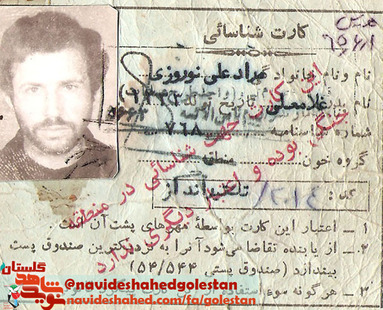 کارت شناسائی
نام و نام خانوادگی مراد علی نوروزی
نام پدر غلامعلی تاریخ
شماره شناسنامه ۷۶۸
گروه خون: منطقه
کد: ۱۳۱۴ / تک تیرانداز
این کارت جهت شناسائی در منطقه
جنگی بوده و اعتبار دیگری ندارد
۱ – اعتبار این کارت بوسیله مهرهای پشت آن است.
۲ – از یابنده تقاضا می‌شود آنرا به نزدیکترین صندوق پست
بیندازد (صندوق پستی ۵۴/۵۴۴)
۳ – هرگونه سوء استفاده از
نوید شاهد گلستان
@navideshahedgolestan
navideshahed.com/fa/golestan